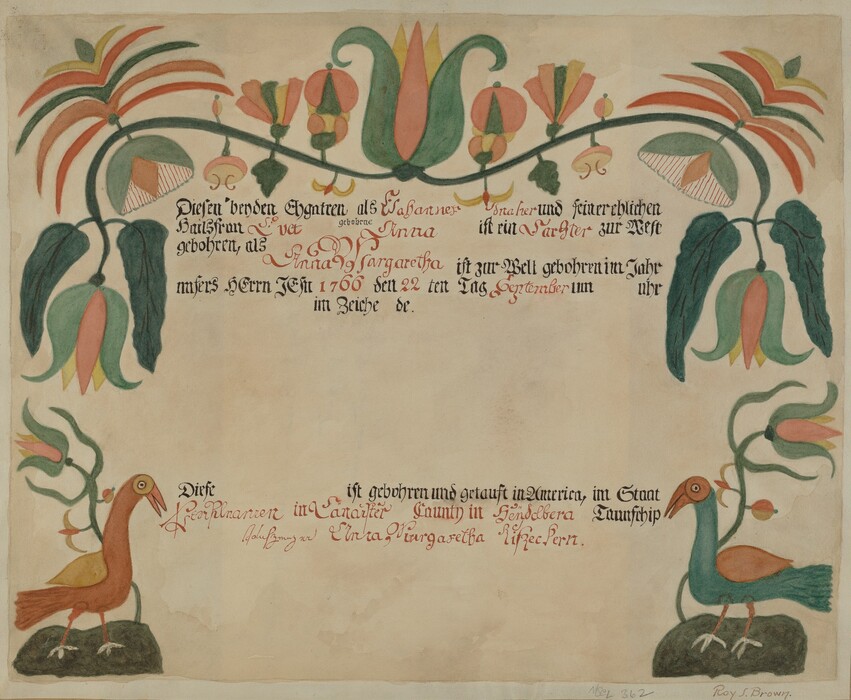 Diesen beyden Ehgatten als Johannes und seiner ehlichen
Hausfrau Evet gebohrne Anna ist ein Tachter zur Welt
gebohren, als
Anna Margaretha ist zur Welt gebohren im Jahr
unsers HErrn JEsu 1766 den 22 ten Tag September um uhr
im Zeiche de.
Diese ist gebohren und getauft in America, im Staat
in Lancaster Caunty in Heydelberg Taunschip
Anna Margaretha
362 Roy S. Brown.